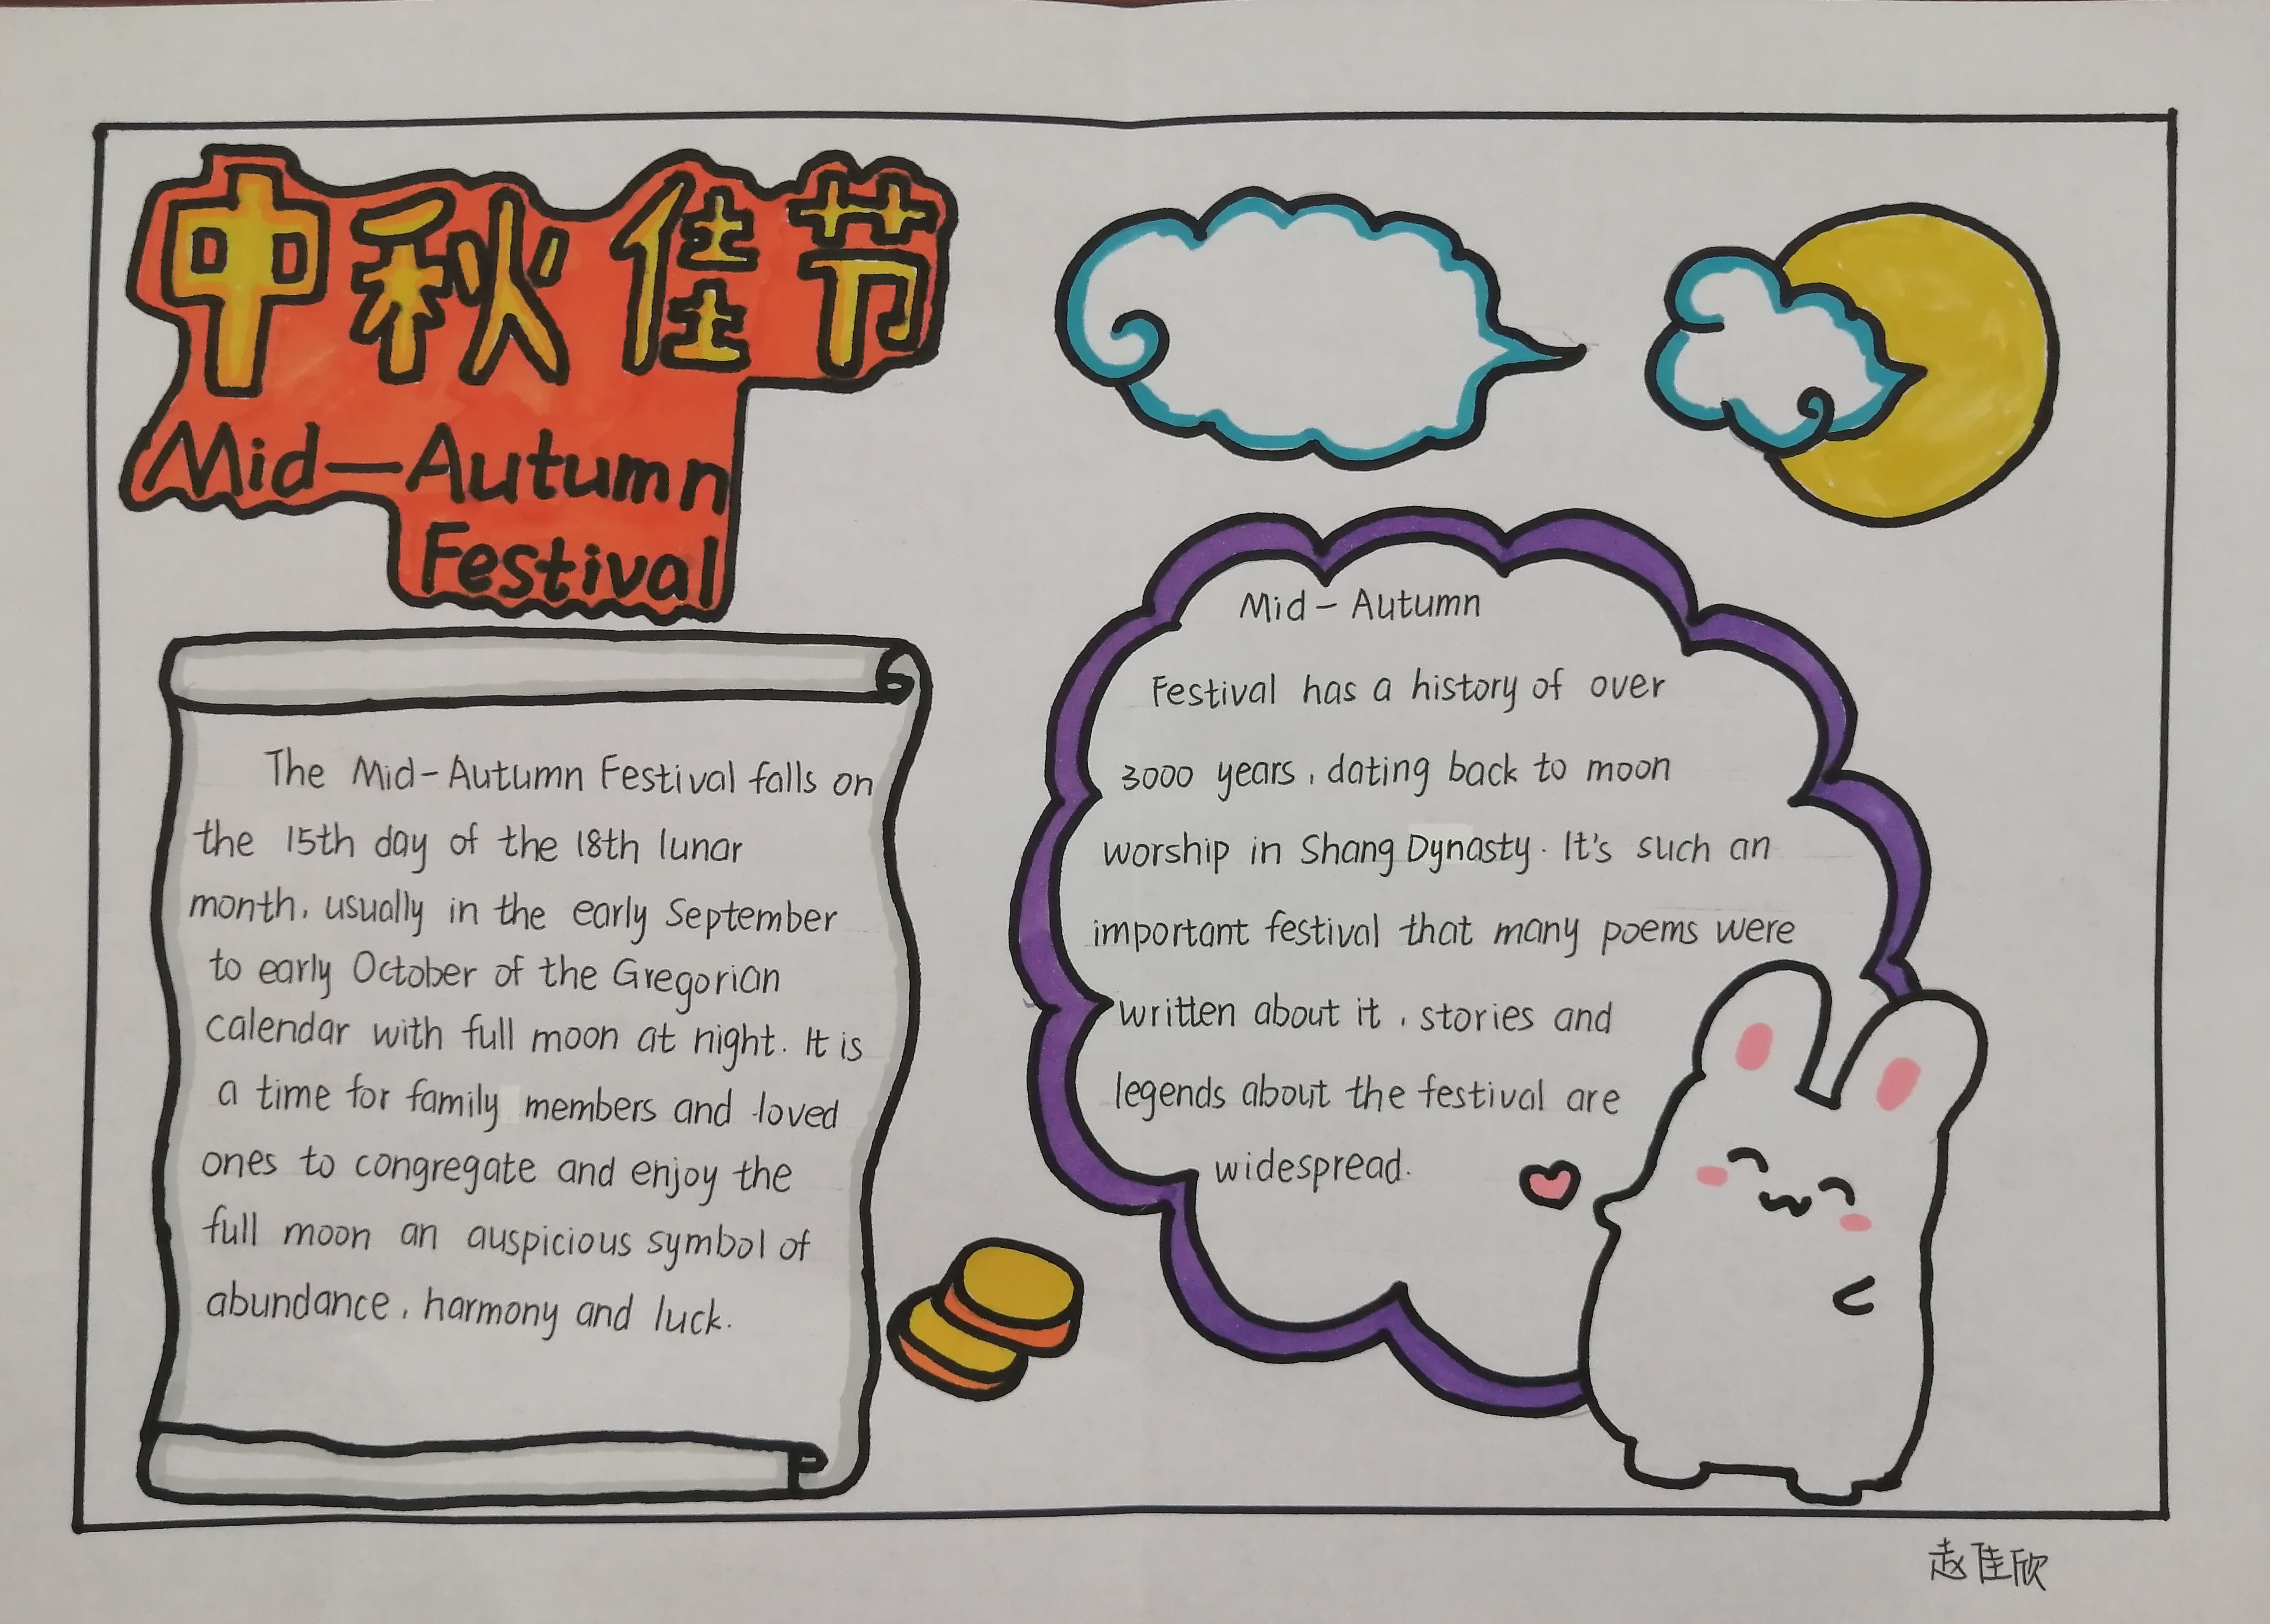 中秋佳节
Mid-Autumn
Festival
The Mid-Autumn Festival falls on
the 15th day of the 18th lunar
month, usually in the early September
to early October of the Gregorian
calendar with full moon at night. It is
a time for family members and loved
ones to congregate and enjoy the
full moon an auspicious symbol of
abundance, harmony and luck.
Mid-Autumn
Festival has a history of over
3000 years, dating back to moon
worship in Shang Dynasty. It's such an
important festival that many poems were
written about it, stories and
legends about the festival are
widespread.
赵佳欣